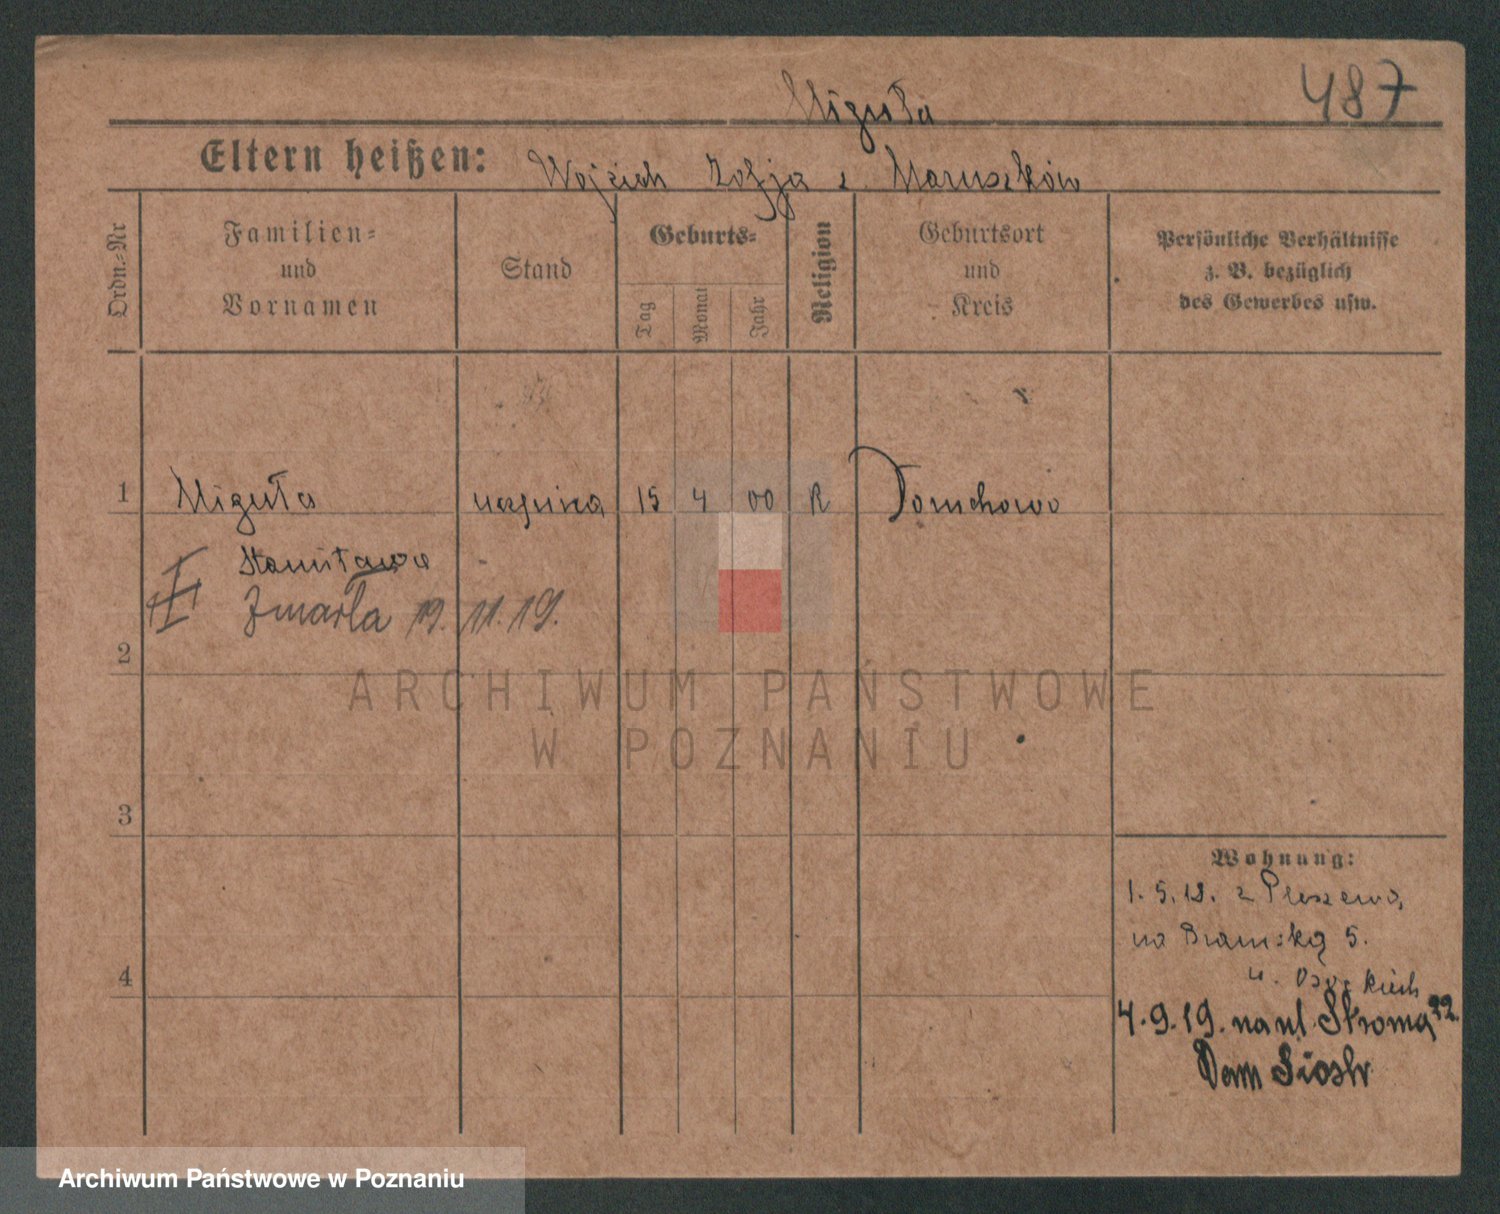 487
Miguła
Eltern heißen: Wojciech Zofja z Maruszków
Ordn.-Nr
Familien-
und
Vornamen
Stand
Geburts-
Tag
Monat
Jahr
Religion
Geburtsort
und
Kreis
Persönliche Verhältnisse
z. B. bezüglich
des Gewerbes usw.
1 Miguła 15 4 00 R
Stanisława
Zmarła 19. 11. 19.
2
ARCHIWUM PAŃSTWOWE
W POZNANIU
3
Wohnung:
1. 5. 18. z Pleszewa,
na 5.
4
4. 9. 19. na ul. Stroma 22.
Dom Siostr
Archiwum Państwowe w Poznaniu